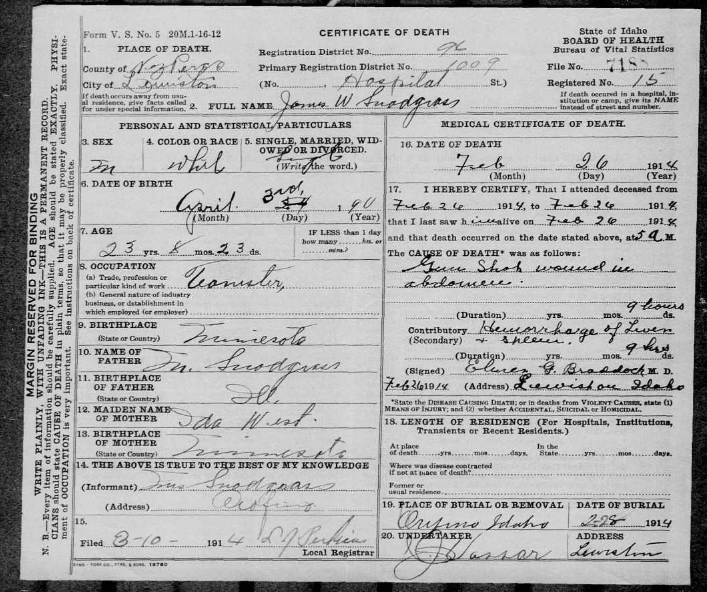 Form V. S. No. 5 20M.1-16-12
CERTIFICATE OF DEATH
State of Idaho
BOARD OF HEALTH
Bureau of Vital Statistics
1. PLACE OF DEATH.
County of Nez Perce
City of Lewiston
If death occurs away from usual residence, give facts called for under special information.
Registration District No.
Primary Registration District No. 1009
(No. Hospital St.)
File No. 7188
Registered No. 15
If death occured in a hospital, institution or camp, give its NAME instead of street and number.
2. FULL NAME James W Snodgrass
PERSONAL AND STATISTICAL PARTICULARS
3. SEX
M
4. COLOR OR RACE
Whit
5. SINGLE, MARRIED, WIDOWED OR DIVORCED.
Single
(Write the word.)
6. DATE OF BIRTH
April 3rd, 1 90
(Month) (Day) (Year)
7. AGE
23 yrs. 8 mos. 23 ds.
IF LESS than 1 day how many hrs. or mins.?
8. OCCUPATION
(a) Trade, profession or particular kind of work Teamster,
(b) General nature of industry business, or establishment in which employed (or employer)
9. BIRTHPLACE
(State or Country) Minnesota
10. NAME OF FATHER M. Snodgrass
11. BIRTHPLACE OF FATHER
(State or Country) Ill.
12. MAIDEN NAME OF MOTHER Ida West.
13. BIRTHPLACE OF MOTHER
(State or Country) Minnesota
14. THE ABOVE IS TRUE TO THE BEST OF MY KNOWLEDGE
(Informant) Mrs Snodgrass
(Address) Orofino
15.
Filed 3-10- 1914 Perkins
Local Registrar
SYMS - YORK CO., PTRS. & BDRS. 19760
MEDICAL CERTIFICATE OF DEATH.
16. DATE OF DEATH
Feb 26 1914
(Month) (Day) (Year)
17. I HEREBY CERTIFY, That I attended deceased from
Feb 26 1914, to Feb 26 1914,
that I last saw him alive on Feb 26 1914,
and that death occurred on the date stated above, at 5 A M.
The CAUSE OF DEATH* was as follows:
Gun Shot wound in
abdomen.
9 hours
(Duration) yrs. mos. ds.
Contributory Hemorrhage of Liver
(Secondary) + Spleen.
9 hrs
(Duration) yrs. mos. ds.
(Signed) G. Braddock M. D.
Feb 26 1914 (Address) Lewiston Idaho
*State the DISEASE CAUSING DEATH; or in deaths from VIOLENT CAUSES, state (1) MEANS OF INJURY; and (2) whether ACCIDENTAL, SUICIDAL or HOMICIDAL.
18. LENGTH OF RESIDENCE (For Hospitals, Institutions, Transients or Recent Residents.)
At place of death yrs. mos. days. In the State yrs. mos. days.
Where was disease contracted if not at place of death?
Former or usual residence
19. PLACE OF BURIAL OR REMOVAL
Orofino Idaho
DATE OF BURIAL
2-28 1914
20. UNDERTAKER
Vassar
ADDRESS
Lewiston
MARGIN RESERVED FOR BINDING
WRITE PLAINLY, WITH UNFADING INK—THIS IS A PERMANENT RECORD.
N. B.—Every item of information should be carefully supplied. AGE should be stated EXACTLY. PHYSICIANS should state CAUSE OF DEATH in plain terms, so that it may be properly classified. Exact statement of OCCUPATION is very important. See instructions on back of certificate.